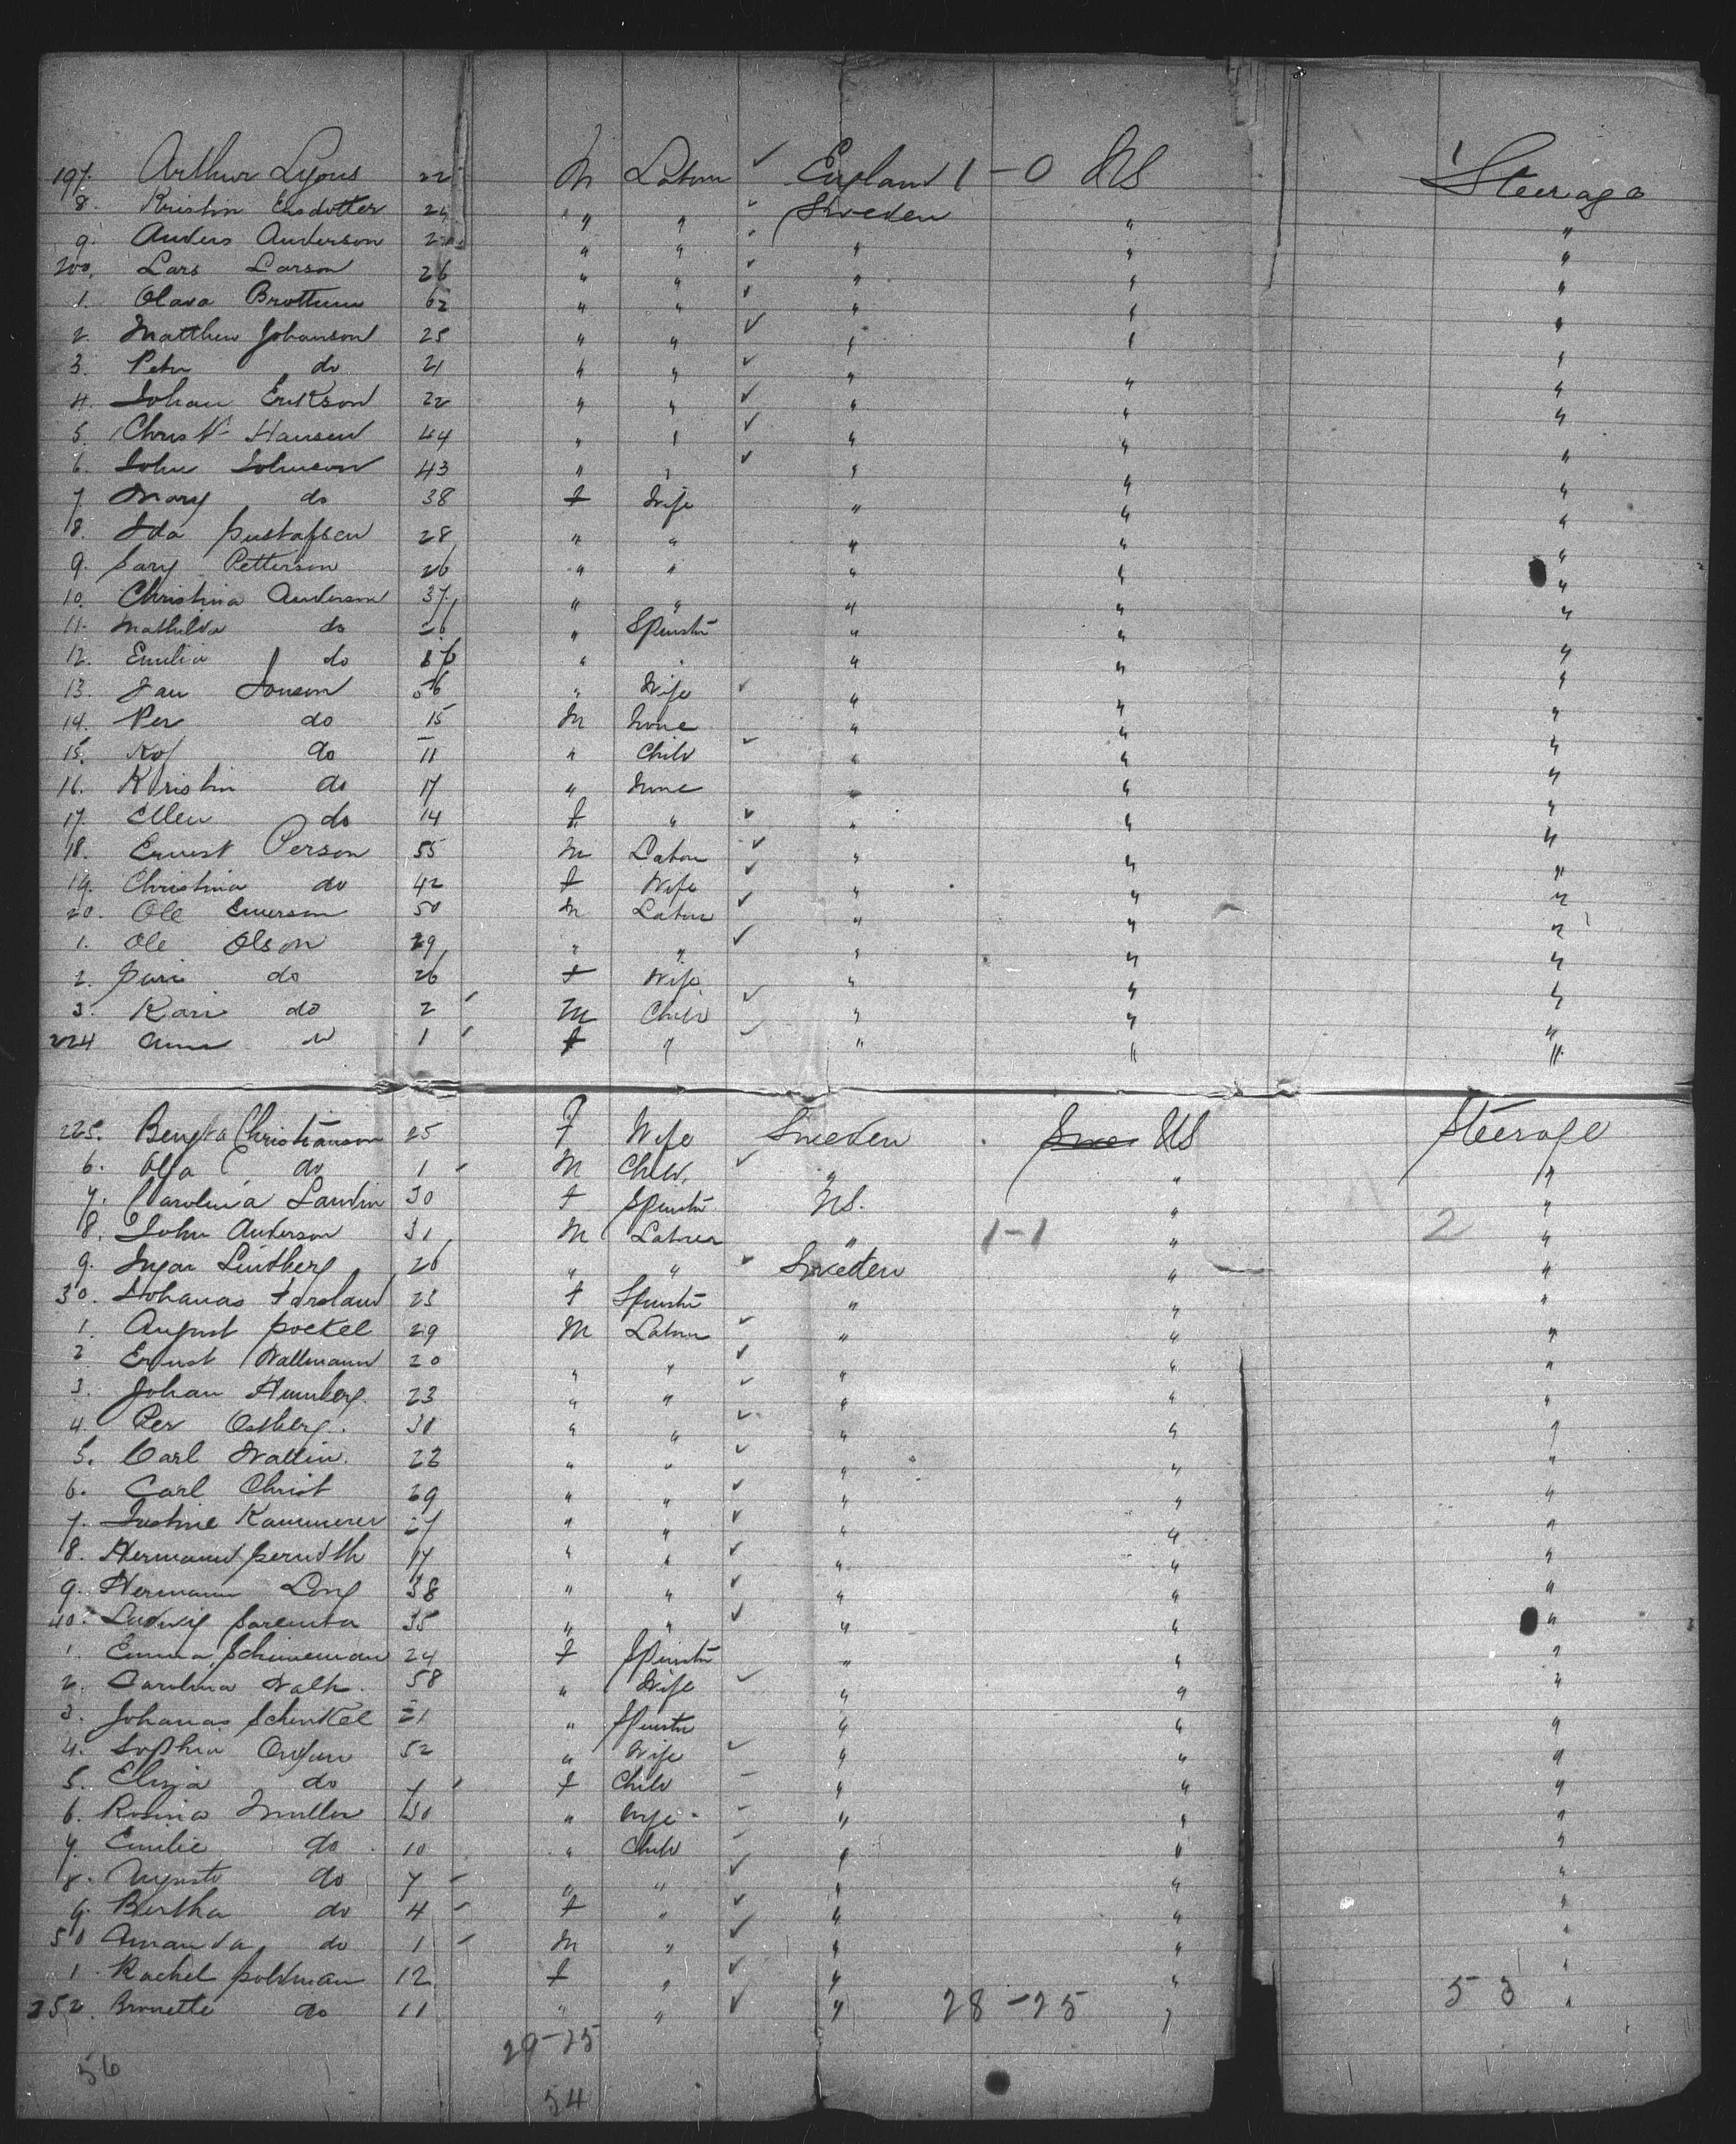 197. Arthur Lyons 22 M Labour ✓ England 1 - 0 US Steerage
8. Kristin Ersdotter 24 " " ✓ Sweden " "
9. Anders Anderson " " " " "
200. Lars Larson 26 " " ✓ " " "
1. Olava 62 " " ✓ " " "
2. Matthew Johanson 25 " " ✓ " " "
3. Peter do 21 " " ✓ " " "
4. Johan Erikson 22 " " ✓ " " "
5. Christ Hansen 44 " " ✓ " " "
6. John Johnson 43 " " ✓ " " "
7 Mary do 38 f Wife " " "
8. Ida Gustafsen 28 " " " " "
9. Petterson 26 " " " " "
10. Christina Anderson 37 " " " " "
11. Mathilda do " Spinstr " " "
12. Emilia do " " " " "
13. Jan Jonson 56 " Wife ✓ " " "
14. Per do 15 M None " " "
15. do 11 " Child ✓ " " "
16. Kristin do 17 " None " " "
17. Ellen do 14 f " ✓ " " "
18. Ernest Person 55 M Labour ✓ " " "
19. Christina do 42 f Wife ✓ " " "
20. Ole Emerson 50 M Labour ✓ " " "
1. Ole Olson 29 " " ✓ " " "
2. Guri do 26 f Wife " " "
3. Kari do 2 M Child ✓ " " "
224 Anna do 1 f " ✓ " " "
225. Bengta Christianson 25 f Wife Sweden US Steerage
6. Ola do 1 M Child ✓ " " "
7. Carolina Landin 30 f Spinstr US. " "
8. John Anderson 31 M Labourer " 1-1 " 2 "
9. Lindberg 26 " " ✓ Sweden " "
30. Johanas Forsland 23 f Spinstr " " "
1. August Gockel 29 M Labour ✓ " " "
2 Ernst Wallmann 20 " " ✓ " " "
3. Johan 23 " " ✓ " " "
4. Per Ostberg. 30 " " ✓ " " "
5. Carl Wallin. 22 " " ✓ " " "
6. Carl Christ 29 " " ✓ " " "
7. Justine Kammerer 27 " " ✓ " " "
8. Hermann 17 " " ✓ " " "
9. Hermann Long 38 " " ✓ " " "
40. Ludwig 35 " " ✓ " " "
1. Emma Schuneman 24 f Spinstr " " "
2. Carolina 58 " Wife ✓ " " "
3. Johanas Schinkel 21 " Spinstr " " "
4. Sophia 52 " Wife ✓ " " "
5. Eliza do 7 f Child " " "
6. Rosina Muller 30 " Wife " " "
7. Emilie do 10 " Child " " "
8. Auguste do 7 " " ✓ " " "
9. Bertha do 4 f " ✓ " " "
50 Amanda do 1 M " ✓ " " "
1. Rachel Goldman 12 f " ✓ " " "
252. Brunette do 11 " " ✓ " 28-25 " 53 "
29-25
56
54